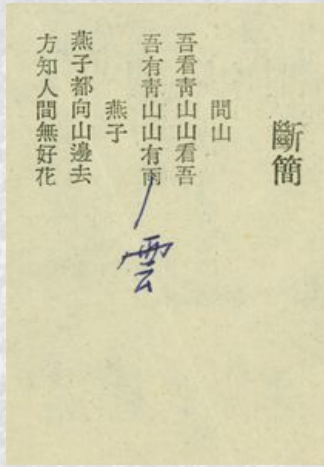 斷簡
問山
吾看靑山山看吾
吾有靑山山有雨
雲
燕子
燕子都向山邊去
方知人間無好花